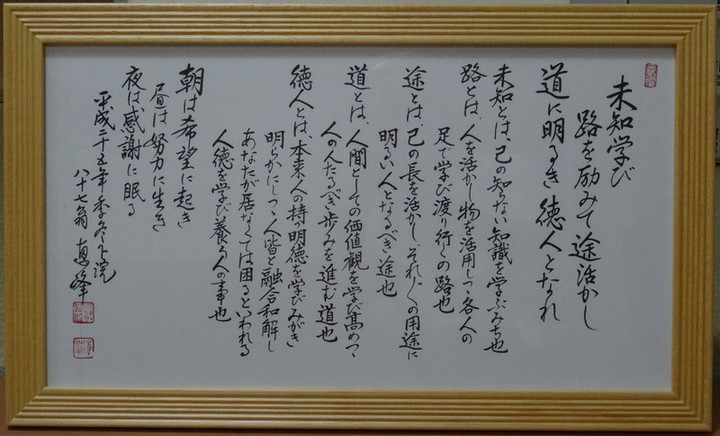 未知学び
路を励みて途活かし
道に明るき徳人となれ
未知とは、己の知らない知識を学ぶみち也
路とは、人を活かし物を活用しつゝ各人の
足で学び渡り行くの路也
途とは、己の長を活かしそれ〲の用途に
明るい人となるべき途也
道とは、人間としての価値観を学び高めつゝ
人の人たるべき歩みを進む道也
徳人とは、本来人の持つ明徳を学びみがき
明らかにしつゝ人皆と融合和解し
あなたが居なくては困るといわれる
人徳を学び養う人の事也
朝は希望に起き
昼は努力に生き
夜は感謝に眠る
平成二十五年季冬下浣
八十七翁 恵峰